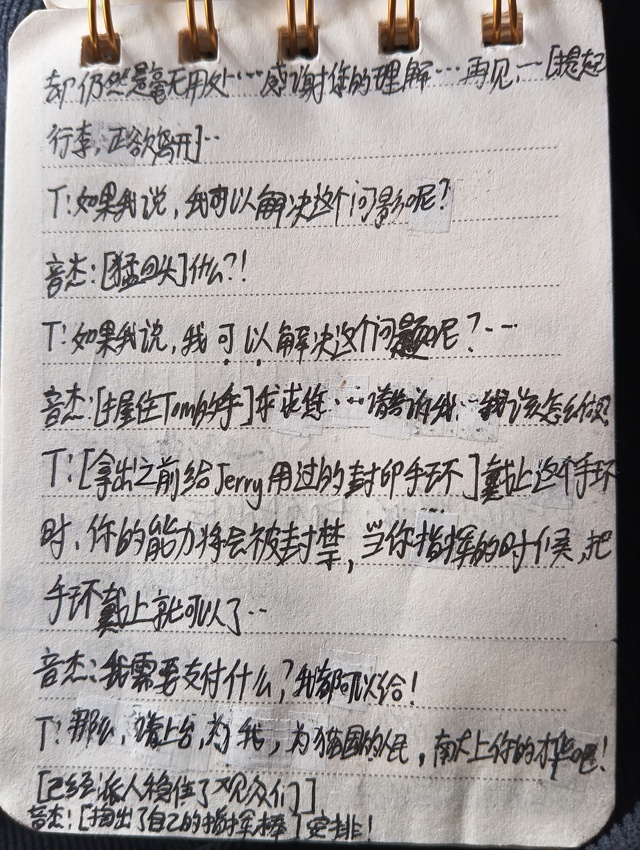 却仍然是毫无用处…感谢您的理解…再见,一[提起
行李,正欲离开]..
T:如果我说,我可以解决这个问题呢?
音杰:[猛回头]什么?!
T:如果我说,我可以解决这个问题呢?...
音杰:[握住Tom的手]求求您…请告诉我…我该怎么做
T:[拿出之前给Jerry用过的封印手环]戴上这个手环
时,你的能力将会被封禁,当你指挥的时候,把
手环戴上就可以了..
音杰:我需要支付什么?我都可以给!
T:那么,请上台,为我,为猫国的人民,献上你的才华吧!
[已经派人稳住了观众们]
音杰:[掏出了自己的指挥棒]安排!